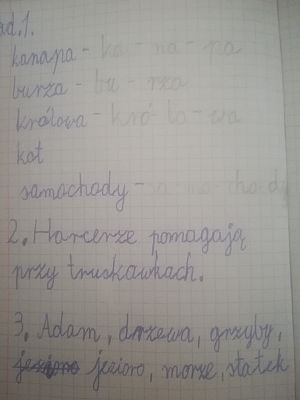 ad.1.
kanapa - ka - na - pa
burza - bu - rza
królowa - kró - lo - wa
kot
samochody - sa - mo - cho - dy
2. Harcerze pomagają
przy truskawkach.
3. Adam, drzewa, grzyby,
jezioro, morze, statek